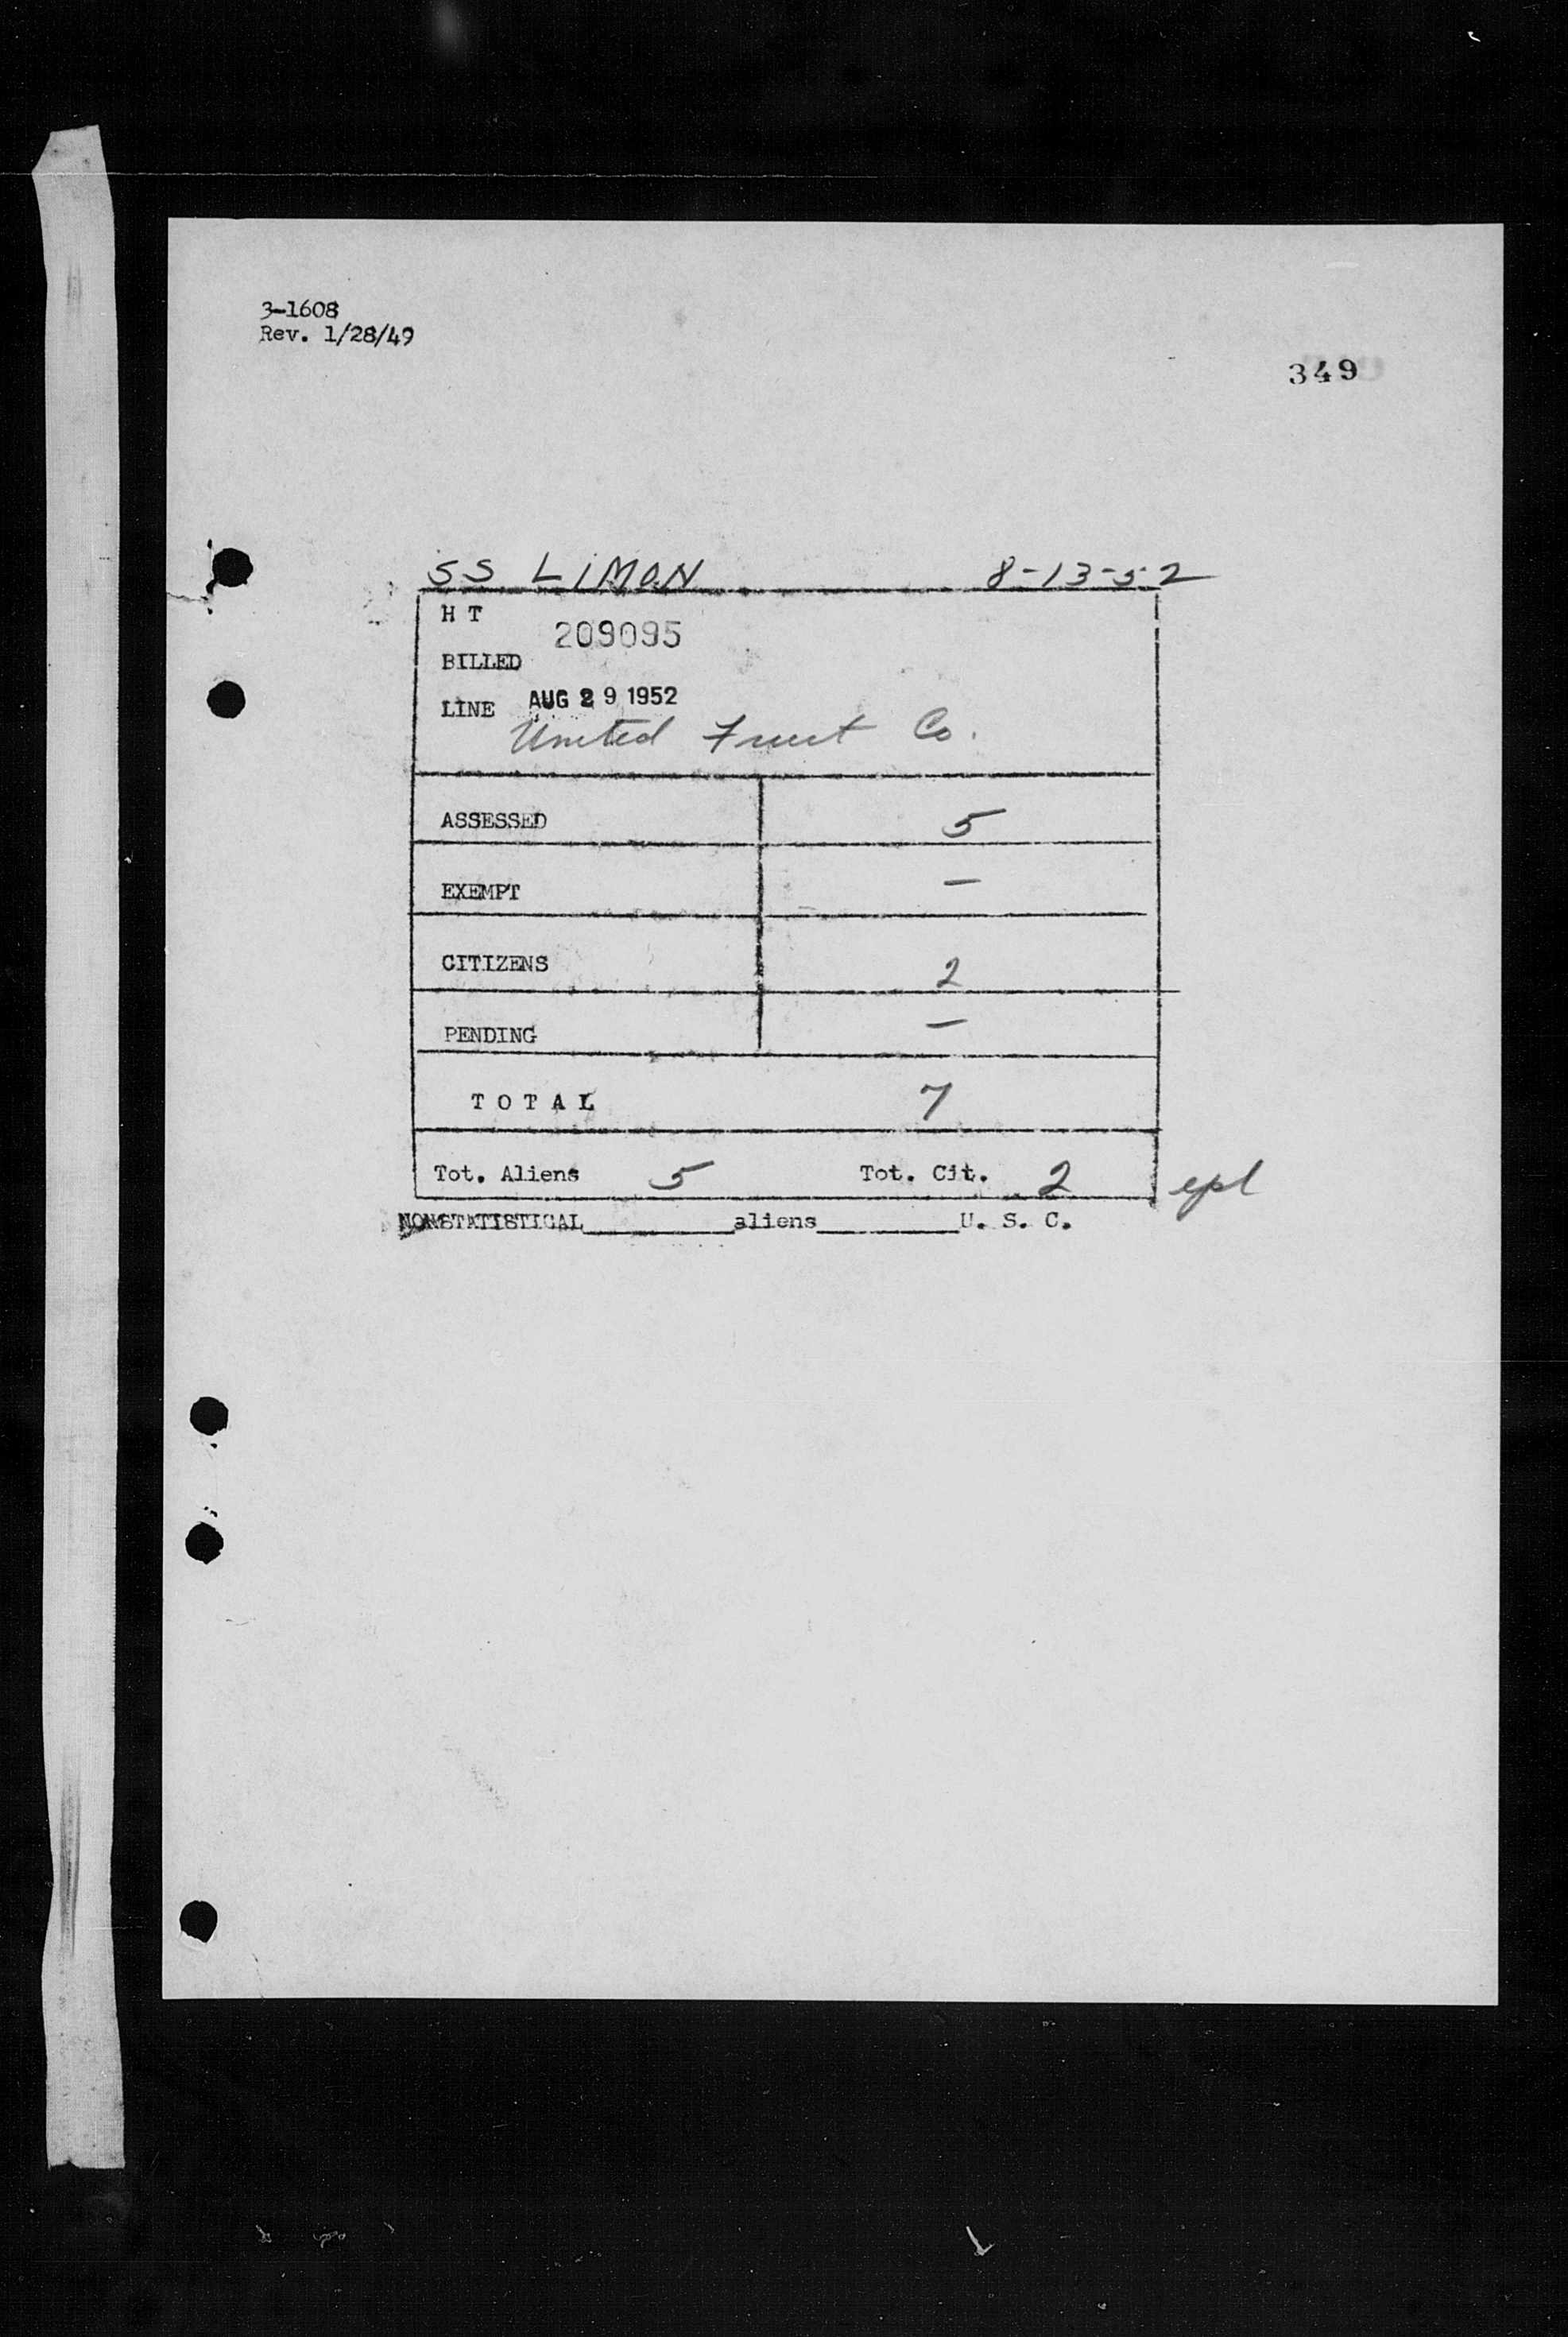 3-1608
Rev. 1/28/49
349
SS LIMON 8-13-52
H T
209095
BILLED
LINE AUG 29 1952
United Fruit Co.
ASSESSED 5
EXEMPT —
CITIZENS 2
PENDING —
T O T A L 7
Tot. Aliens 5 Tot. Cit. 2 epl
NONSTATISTICAL__________aliens__________U. S. C.